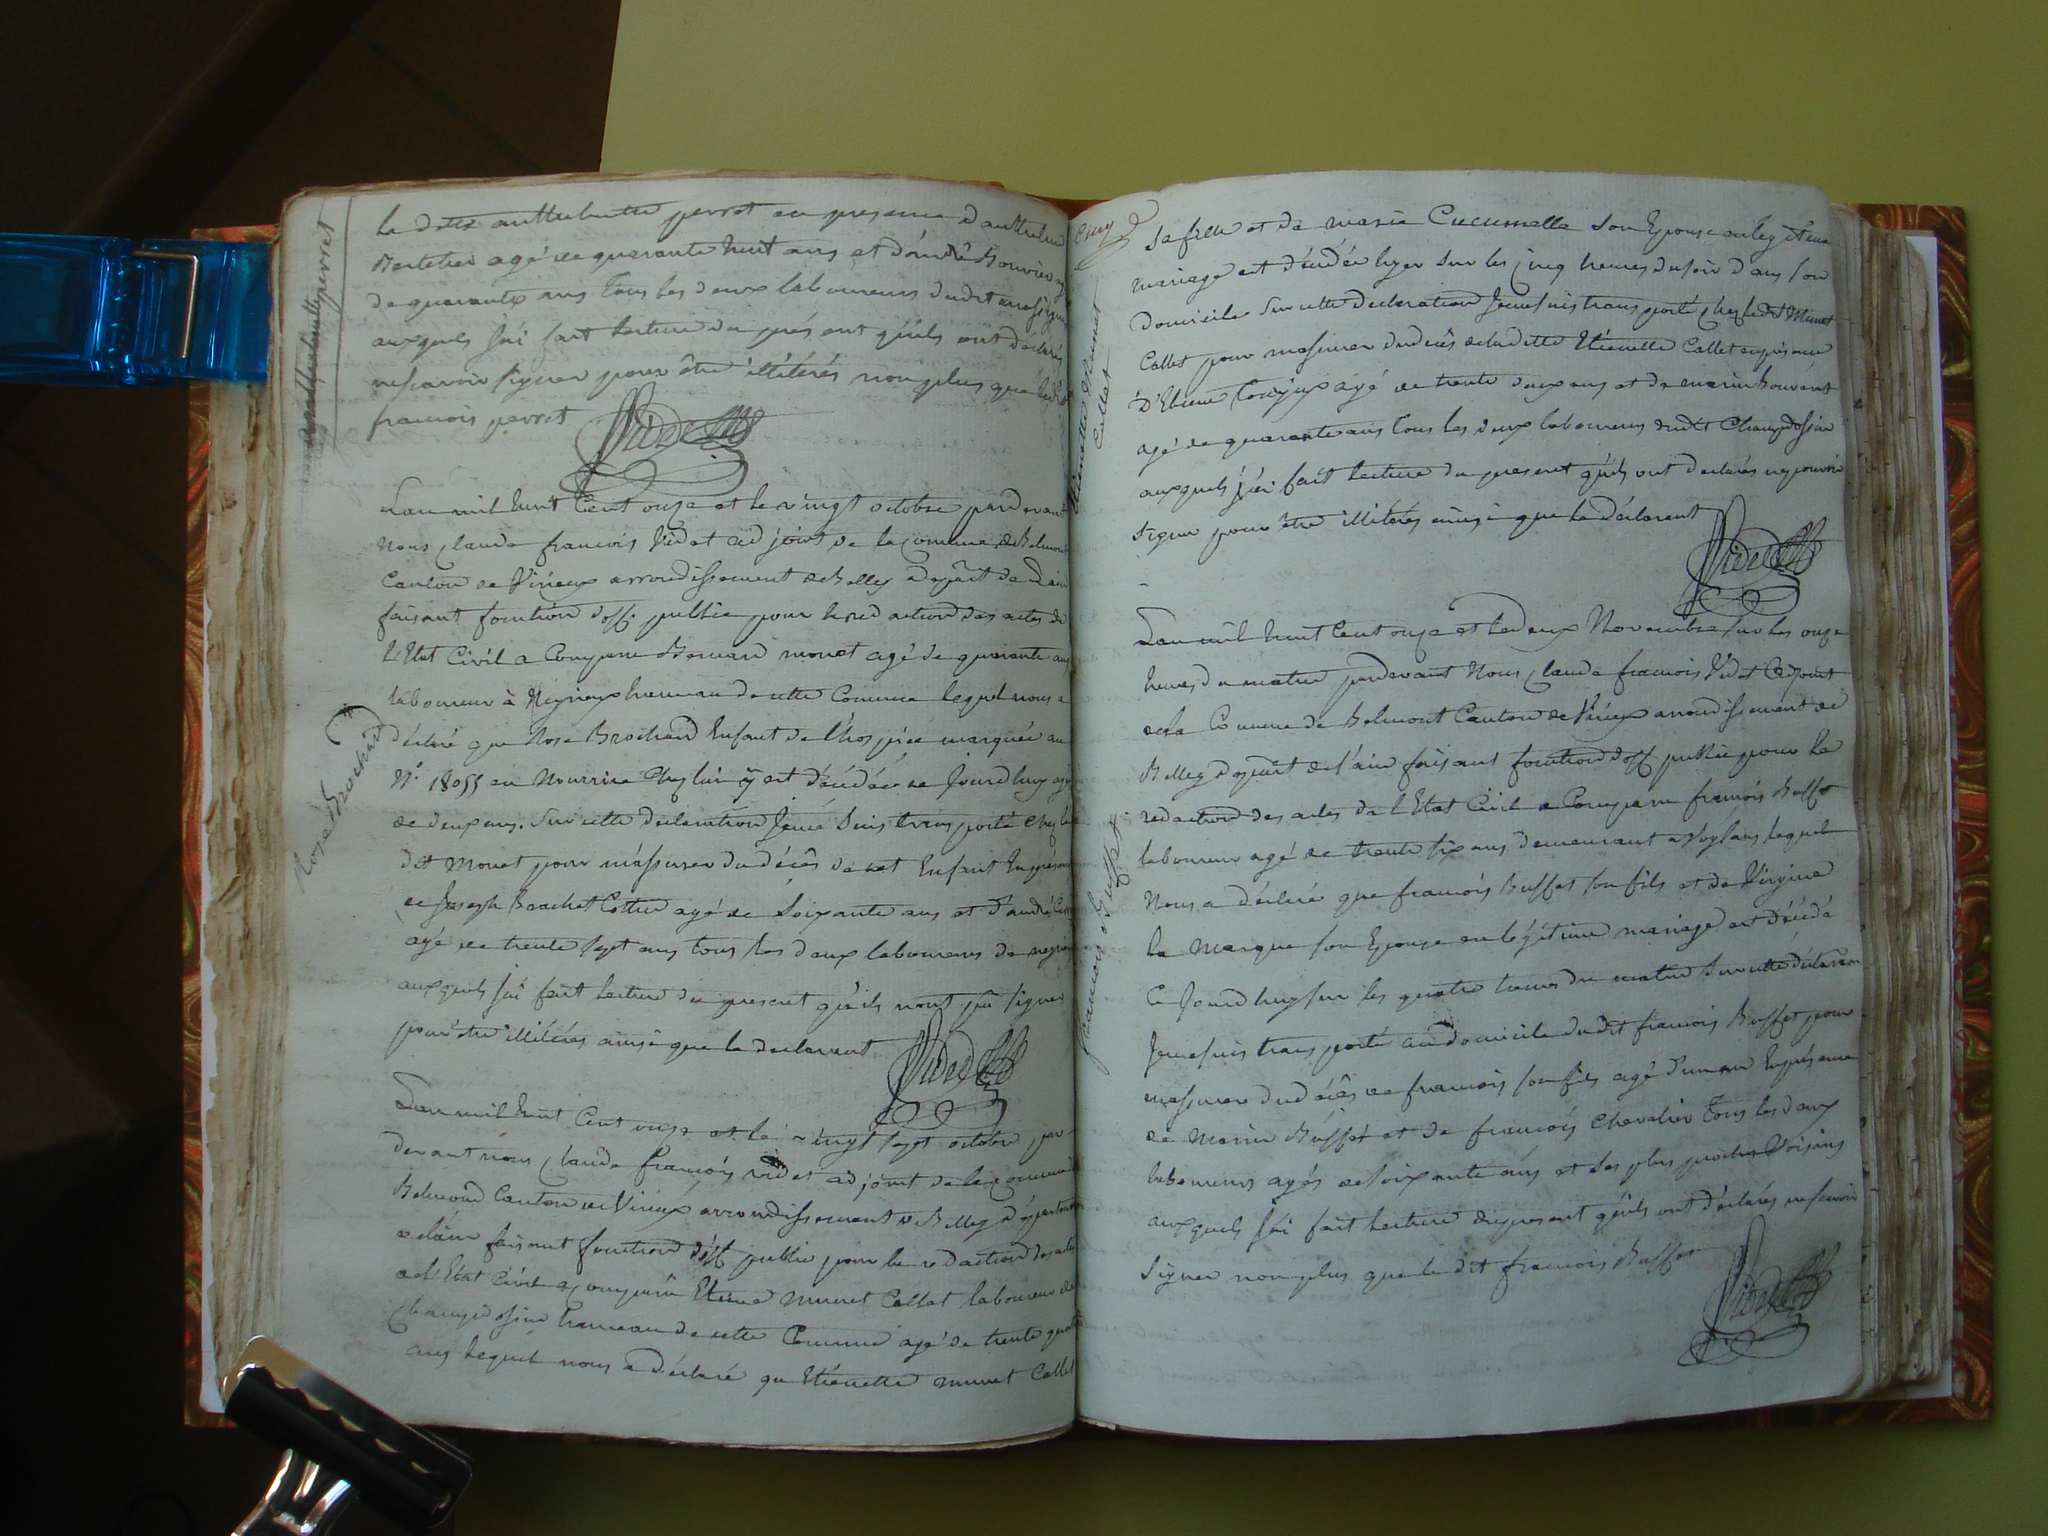 la dette anthelmette perret en presence d'anthelme
Bertelier agé de quarante huit ans et d'andré Bouvier agé
de quarante ans tous les deux laboureurs dudit
auxquels j'ai fait lecture du présent qu'ils ont déclarés
ne scavoir signer pour être illiterés non plus que ledit
francois perret
Videt
L'an mil huit Cent onze et le vingt octobre pardevant
Nous Claude francois Videt adjoint de la commune de Belmont
Canton de Virieux arrondissement de Belley depart. de l'ain
faisant fonction d'off. public pour la redaction des actes de
l'Etat Civil a Comparu Bernard monet agé de quarante ans
laboureur à hameau de cette Commune lequel nous a
déclaré que Rose Brochard Enfant de l'hospice marquée au
N.° 18055 en Nourrice Chez lui y est décédée ce Jourd'huy agé
de deux ans. Sur cette declaration Je me suis transporté chez le
dit Monet pour m'assurer du décès de cet Enfant En présence
de Joseph Brachet Cottier agé de Soixante ans et d'andré
agé de trente sept ans tous les deux laboureurs de
auxquels j'ai fait lecture du present qu'ils n'ont pu signer
pour être illiterés ainsi que le declarant
Videt
L'an mil huit Cent onze et le vingt sept octobre par
devant nous Claude francois videt adjoint de la commune
Belmond Canton de Virieux arrondissement de Belley département
de l'ain faisant fonction d'off. public pour la redaction des actes
de l'Etat Civil a comparu Etiene Munet Callet laboureur de
Champdosin hameau de cette Commune agé de trente quatre
ans lequel nous a déclaré qu'Etienette munet Callet
Rose Brochard
sa fille et de marie Cucumelle son Epouse en legitime
mariage est décédée hyer sur les cinq heures du soir dans son
domicile sur cette declaration Je me suis transporté chez ledit Munet
Callet pour m'assurer du décès de laditte Etienette Callet en présence
d'Etiene agé de trente deux ans et de marin
agé de quarante ans tous les deux laboureurs dudit Champdosin
auxquels j'ai fait lecture du present qu'ils ont declarés ne pouvoir
signer pour être illiterés ainsi que le déclarant
Videt
Etienette Munet
Callet
L'an mil huit Cent onze et le deux Novembre sur les onze
heures du matin pardevant Nous Claude francois Videt adjoint
de la Commune de Belmont Canton de Virieux arrondissement de
Belley depart. de l'ain faisant fonction d'off. public pour la
redaction des actes de l'Etat Civil a Comparu francois Buffet
laboureur agé de trente six ans demeurant a lequel
Nous a déclaré que francois Buffet son fils et de Virginie
la Marque son Epouse en légitime mariage est décédé
ce Jourd'huy sur les quatre heures du matin sur cette déclaration
Je me suis transporté au domicile dudit francois Buffet pour
m'assurer du décès de francois son fils agé d'un an En présence
de Marin Buffet et de francois Chevalier tous les deux
laboureurs agés de soixante ans et ses plus proches Voisins
auxquels j'ai fait lecture du present qu'ils ont déclarés ne scavoir
signer non plus que le dit francois Buffet
Videt
francois Buffet